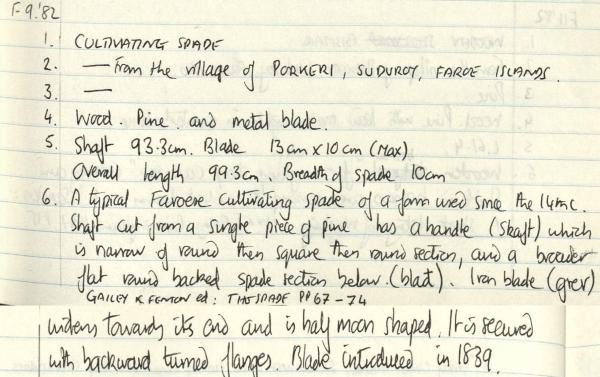 F.9.'82
1. CULTIVATING SPADE
2. — From the village of PORKERI, SUDUROY, FAROE ISLANDS.
3. —
4. Wood. Pine. and metal blade.
5. Shaft 93.3cm. Blade 13cm x 10cm (Max)
Overall length 99.3cm Breadth of spade 10cm
6. A typical Faroese cultivating spade of a form used since the 14thc.
Shaft cut from a single piece of pine has a handle (skaft) which
is narrow of round then square then round section, and a broader
flat round backed spade section below. (blað). Iron blade (grev)
GAILEY & FENTON ed: THE SPADE PP 67-74
widens towards its end and is half moon shaped. It is secured
with backward turned flanges. Blade introduced in 1839.